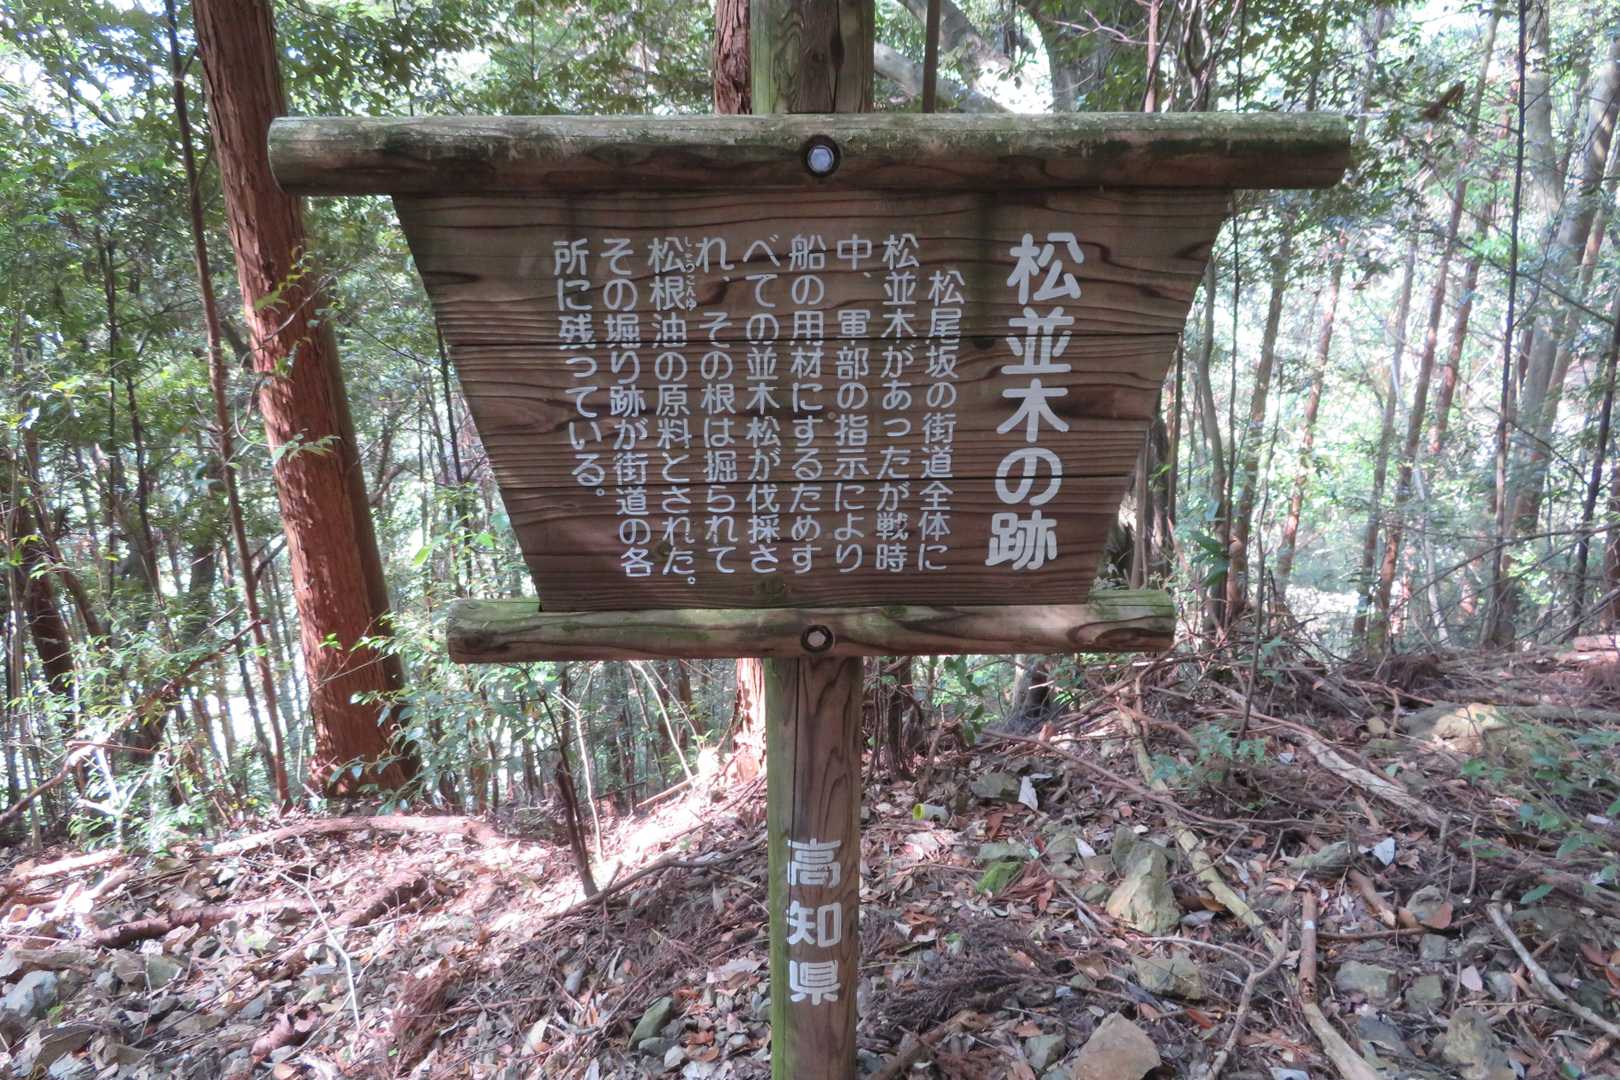 松並木の跡
松尾坂の街道全体に
松並木があったが戦時
中、軍部の指示により
船の用材にするためす
べての並木松が伐採さ
れ、その根は掘られて
しょうこんゆ
松根油の原料とされた。
その堀り跡が街道の各
所に残っている。
高知県